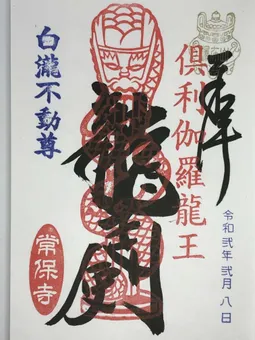 奉拝
倶利伽羅龍王
令和弐年 弐月 八日
龍剣
白瀧不動尊
常保寺